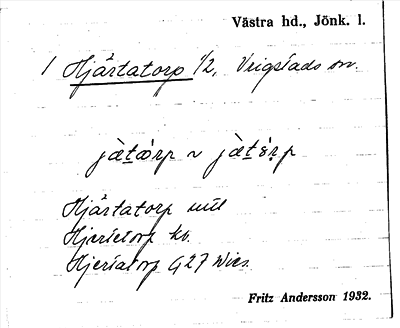 Västra hd., Jönk. l.
1 Hjärtatorp 1/2, Vrigstads sn.
jæ̀t̠ǿrp ~ jæ̀t̠έr̥p
Hjärtatorp
Hjertetorp kv.
Hjertatorp G27
Fritz Andersson 1932.